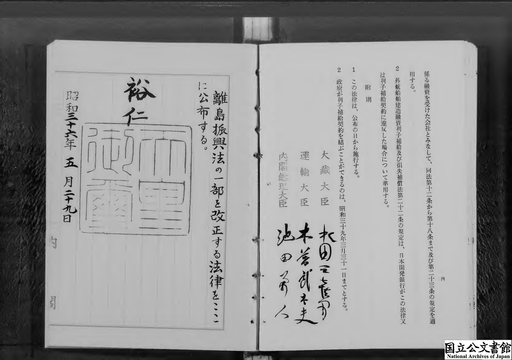 係る融資を受けた会社とみなして、同法第十二条から第十八条まで及び第二十三条の規定を適
用する。
2 外航船舶建造融資利子補給及び損失補償法第二十二条の規定は、日本開発銀行がこの法律又
は利子補給契約に違反した場合について準用する。
附則
1 この法律は、公布の日から施行する。
2 政府が利子補給契約を結ぶことができるのは、昭和三十九年三月三十一日までとする。
大蔵大臣
運輸大臣 木暮武太夫
内閣総理大臣 池田勇人
離島振興法の一部を改正する法律をここ
に公布する。
裕仁
昭和三十六年五月二十九日
内閣
国立公文書館
National Archives of Japan